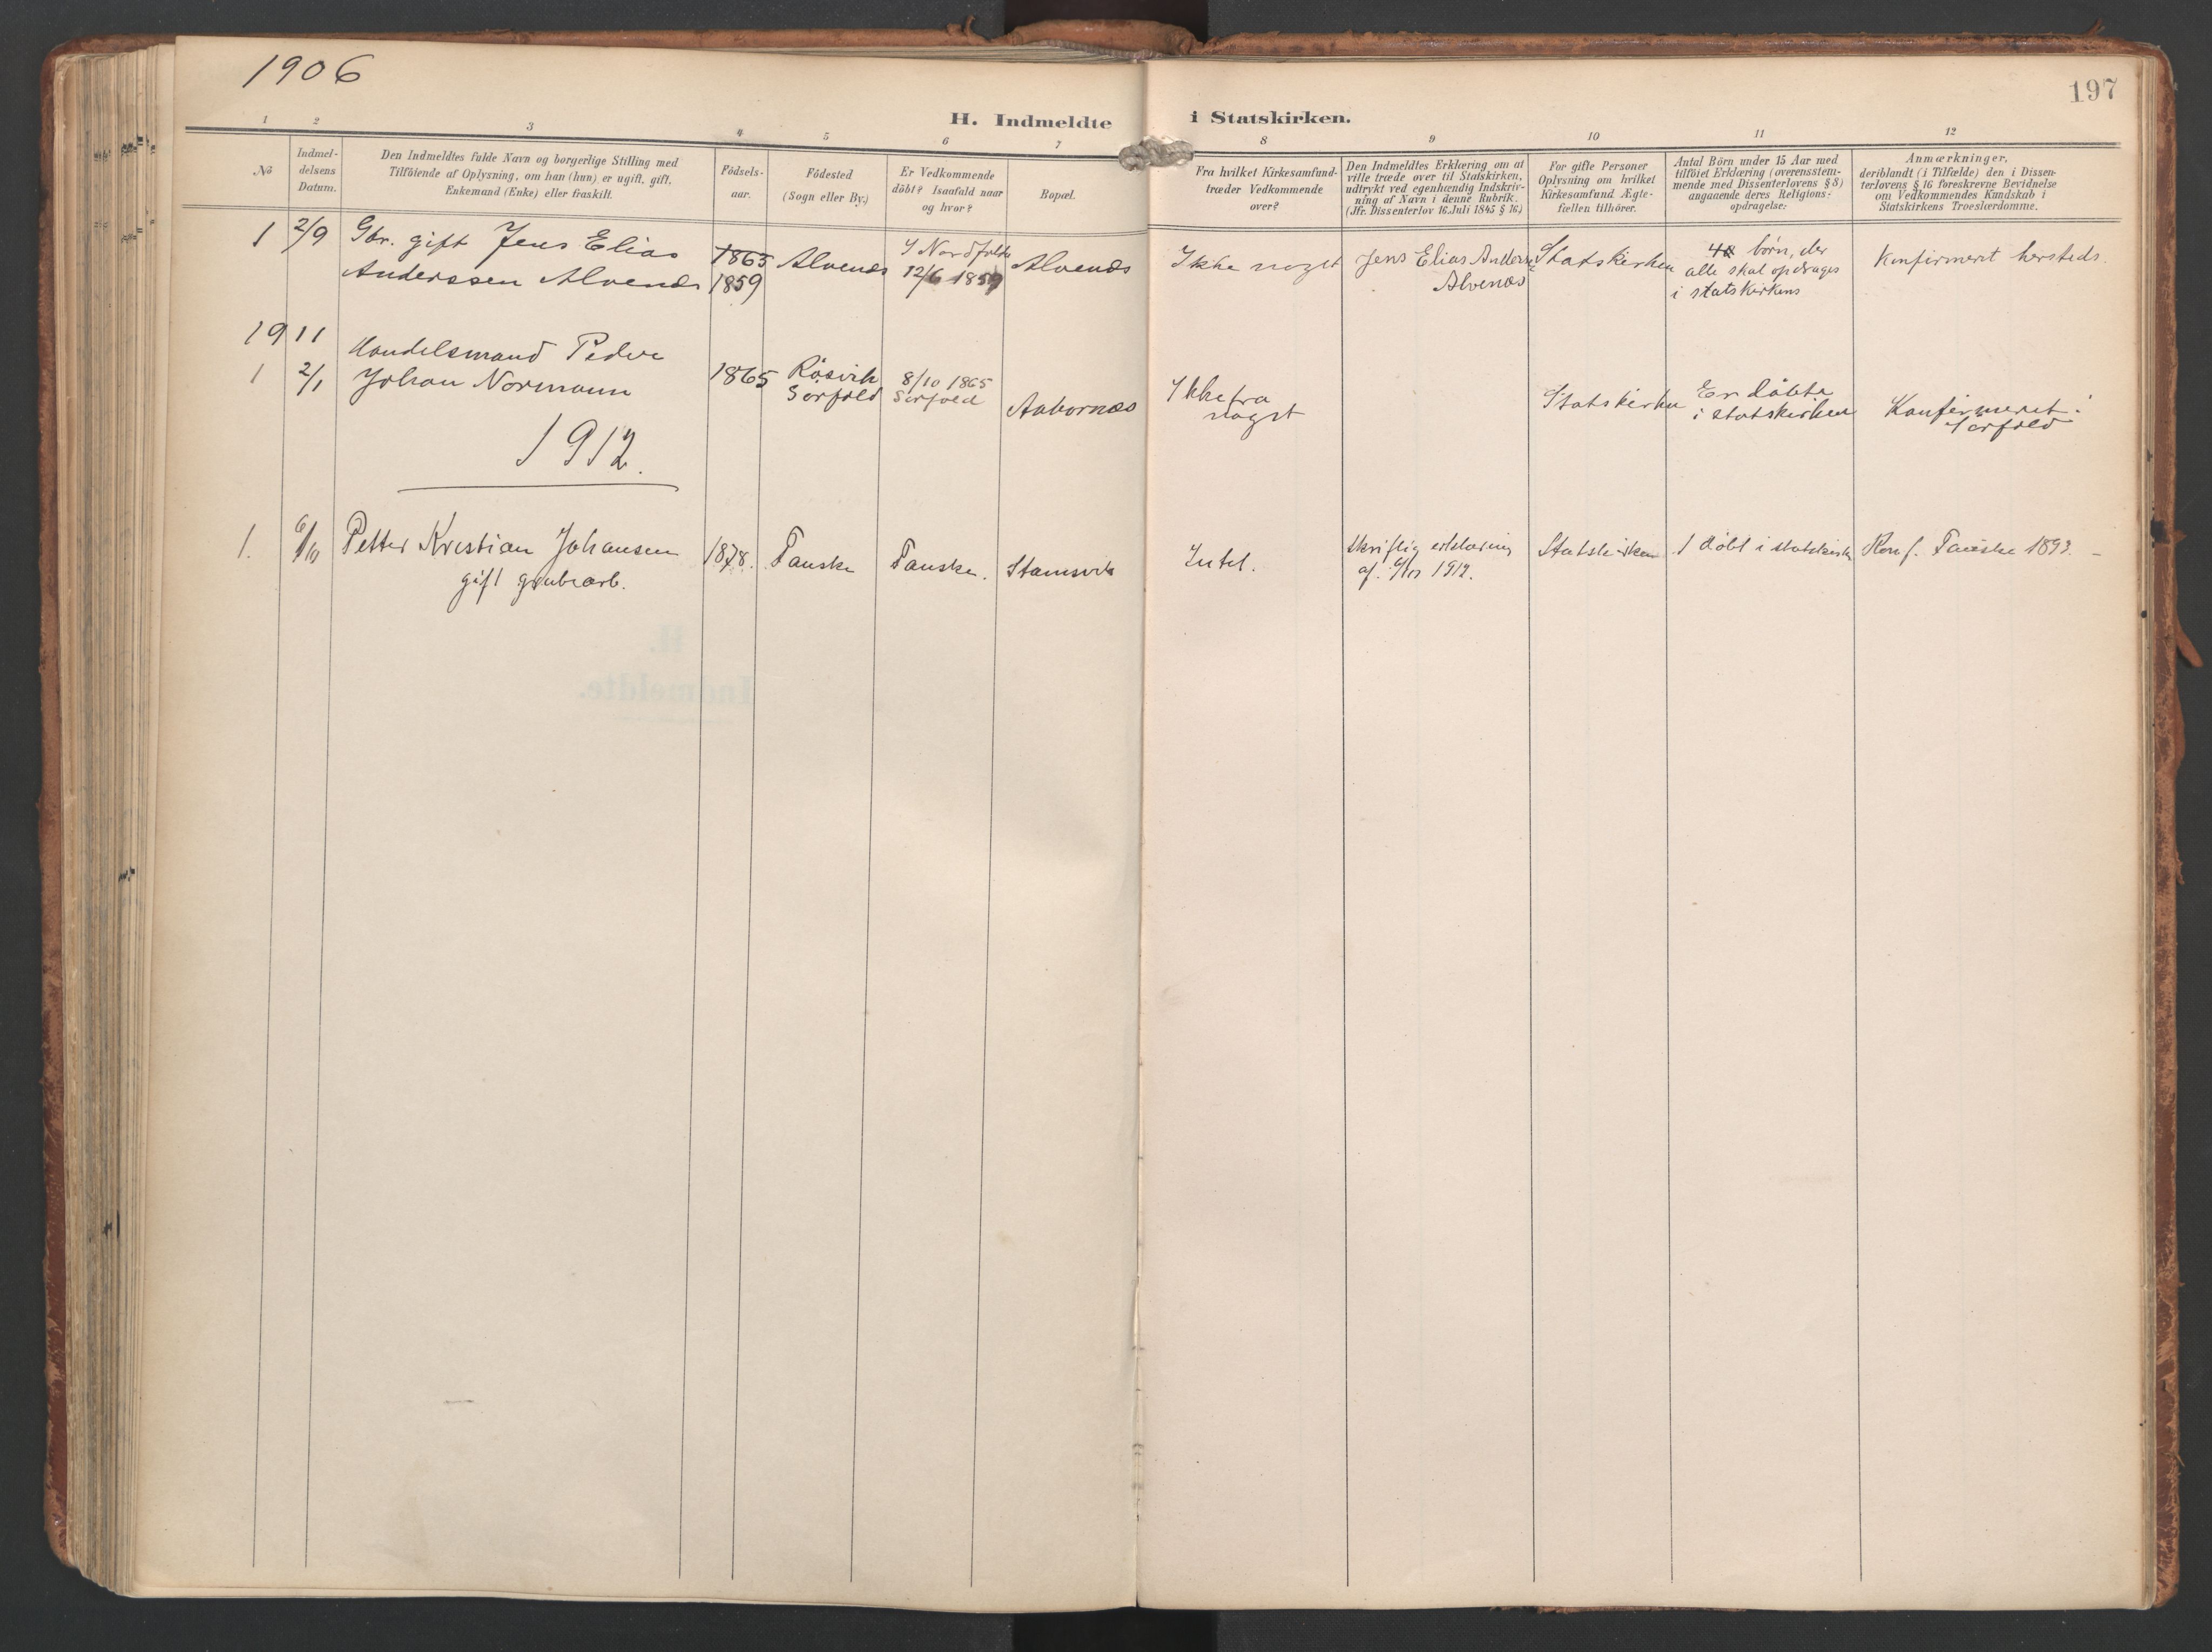 1906
197
H. Indmeldte i Statskirken.
1 2 3 4 5 6 7 8 9 10 11 12
No
Indmel-
delsens
Datum.
Den Indmeldtes fulde Navn og borgerlige Stilling med
Tilföiende af Oplysning, om han (hun) er ugift, gift,
Enkemand (Enke) eller fraskilt.
Födsels-
aar.
Födested
(Sogn eller By.)
Er Vedkommende
döbt? Isaafald naar
og hvor?
Bopæl.
Fra hvilket Kirkesamfund-
træder Vedkommende
over?
Den Indmeldtes Erklæring om at
ville træde over til Statskirken,
udtrykt ved egenhændig Indskriv-
ning af Navn i denne Rubrik.
(Jfr. Dissenterlov 16. Juli 1845 § 16.)
For gifte Personer
Oplysning om hvilket
Kirkesamfund Ægte-
fællen tilhörer.
Antal Börn under 15 Aar med
tilföiet Erklæring (overensstem-
mende med Dissenterlovens § 8)
angaaende deres Religions-
opdragelse:
Anmærkninger,
deriblandt (i Tilfælde) den i Dissen-
terlovens § 16 foreskrevne Bevidnelse
om Vedkommendes Kundskab i
Statskirkens Troeslærdomme.
1
2/9
Gbr. gift Jens Elias
Anderssen Alvenes
1863
1859
Alvenes
I Nordfolden
12/6 1859
Alvenes
Ikke noget
Jens Elias Anders
Alvenæs
Statskirken
børn, der
alle skal opdrages
i statskirkens
Konfirmeret hersteds.
1911
1
2/1
Handelsmand Peder
Johan Normann
1865
Røsvik
Sørfold
8/10 1865
Sørfold
Aabornæs
Ikke fra
noget
Statskirken
Er døbte
i statskirken
Konfirmeret i
Sørfold
1912.
1.
6/10
Petter Kristian Johansen
gift grubearb.
1878.
Fauske
Fauske.
Stamsvik
Intet.
Skriftlig erklæring
af 6/10 1912.
Statskirken
1 døbt i statskirken
Konf. Fauske 1893. –
H.
Indmeldte.